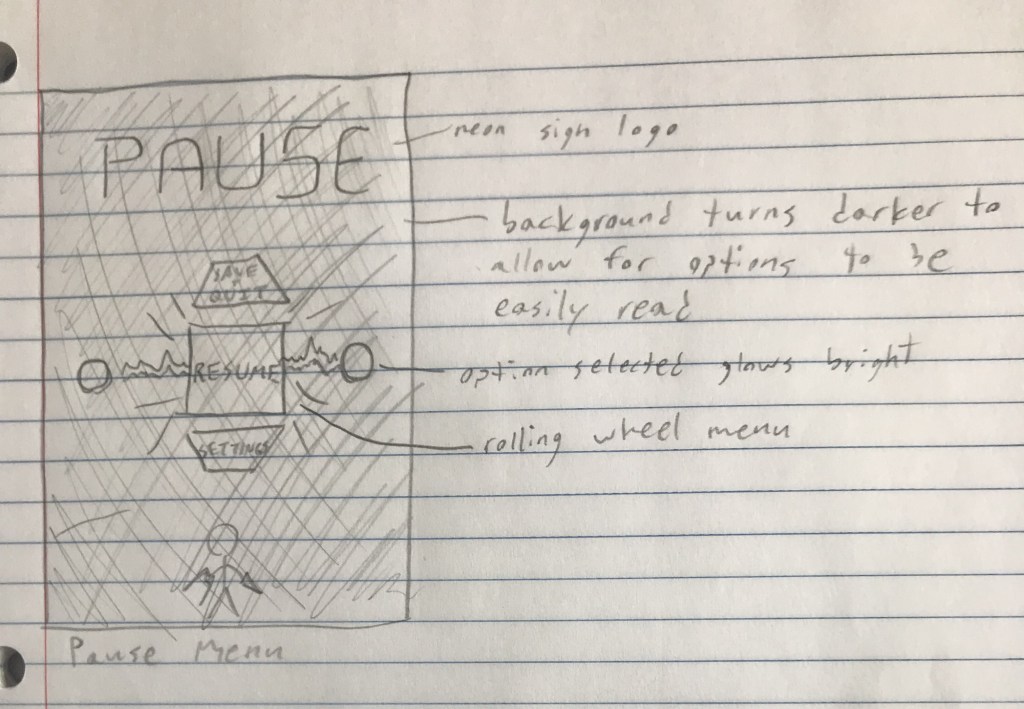 PAUSE
neon sign logo
background turns darker to
allow for options to be
easily read
SAVE
QUIT
RESUME
option selected glows bright
rolling wheel menu
SETTINGS
Pause Menu